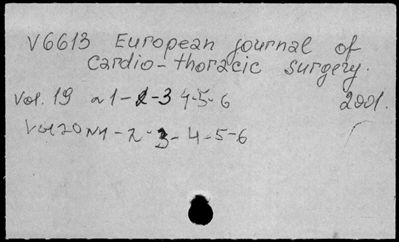 V6613 European journal of
cardio-thoracic surgery.
Vol. 19 N1-2-3 4-5-6 2001.
Vol 20 N1-2-3-4-5-6